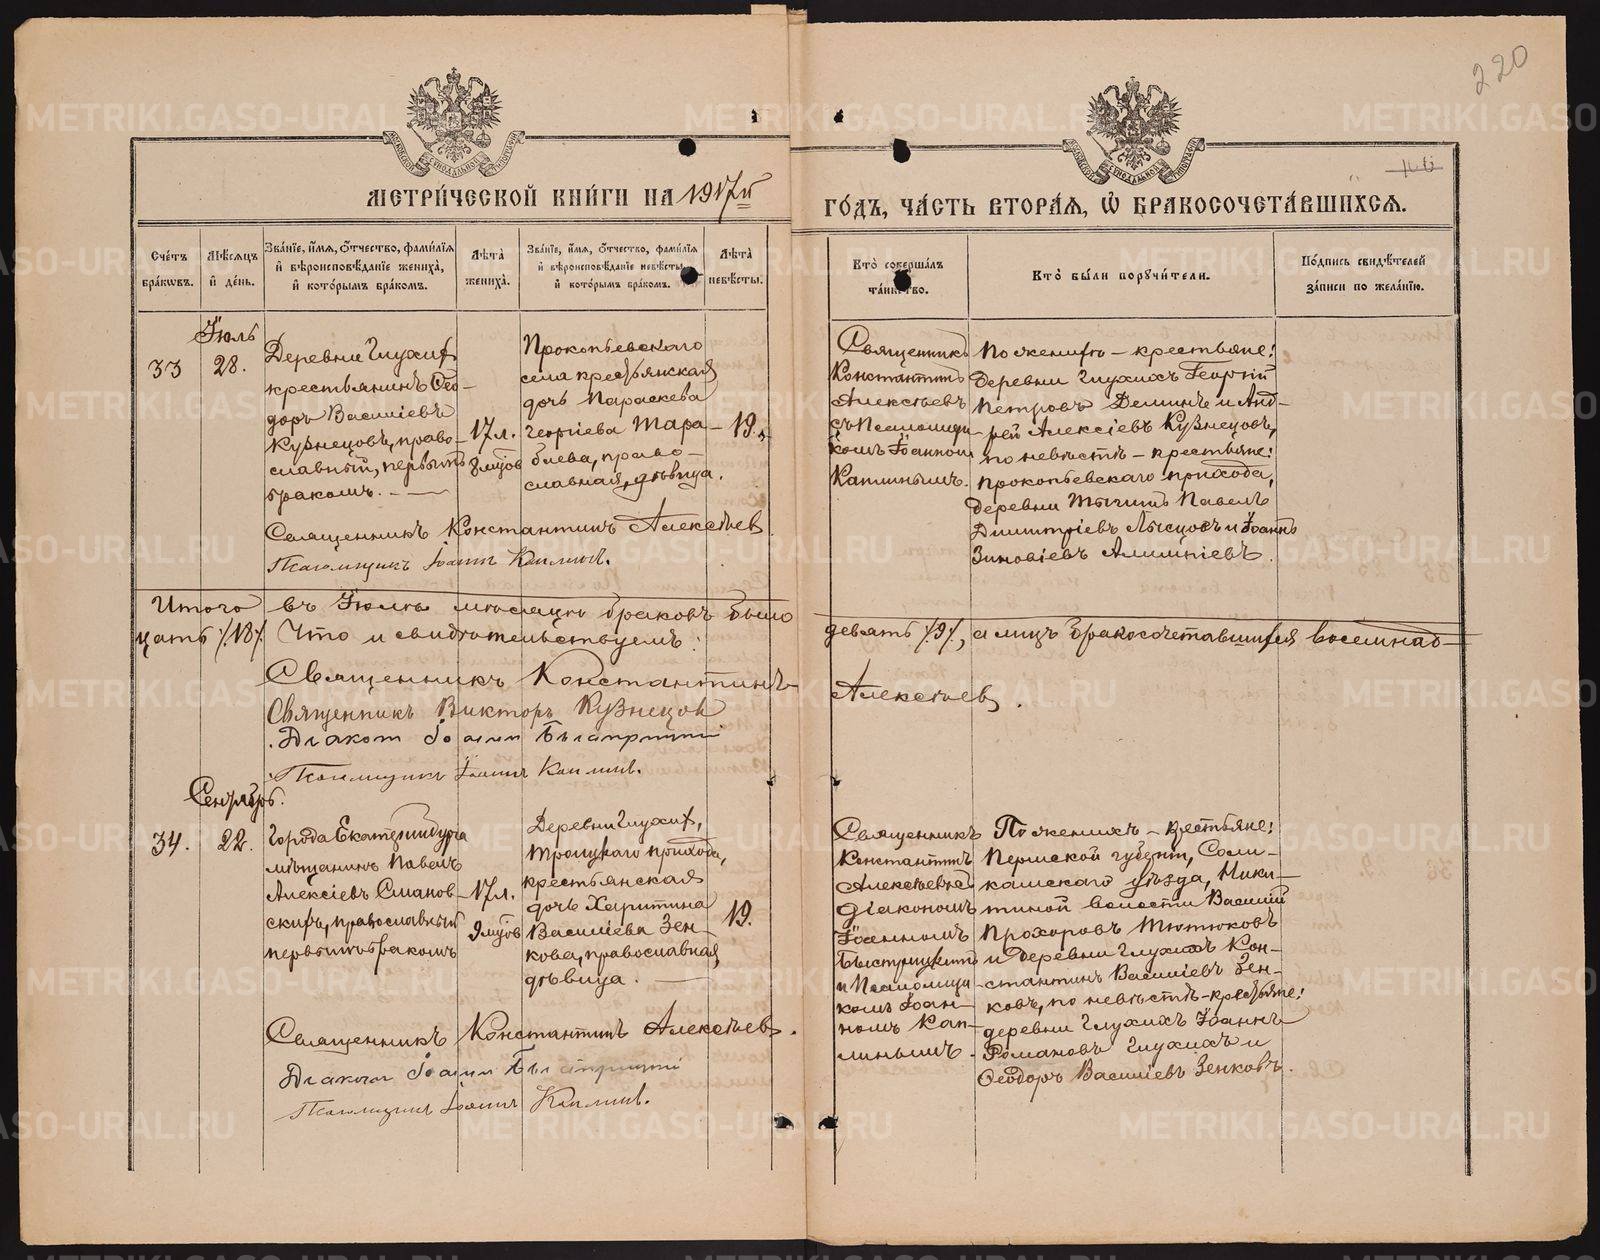 220
МЕТРИ́ЧЕСКОЙ КНИ́ГИ НА 1917й
ГО́ДЪ, ЧА́СТЬ ВТОРА́Я, Ѡ҆ БРАКОСОЧЕТА́ВШИХСЯ.
Сче́тъ бра́ковъ.
Мѣ́сяцъ и҆ де́нь.
Зва́нїе, и҆́мя, ѻ҆́тчество, фами́лїя и҆ вѣроисповѣ́данїе жениха̀, и҆ кото́рымъ бра́комъ.
Лѣ́та жениха̀.
Зва́нїе, и҆́мя, ѻ҆́тчество, фами́лїя и҆ вѣроисповѣ́данїе невѣ́сты, и҆ кото́рымъ бра́комъ.
Лѣ́та невѣ́сты.
Кто̀ соверша́лъ та́инство.
Кто̀ бы́ли поручи́тели.
По́дпись свидѣ́телей за́писи по жела́нїю.
33
Іюль
28.
Деревни Глухихъ
крестьянинъ Ѳео-
доръ Васильевъ
Кузнецовъ, право-
славный, первымъ
бракомъ.
17 л.
8 мѣсцовъ
Прокопьевскаго
села крестьянская
дочь Параскева
Георгіева Тара-
баева, право-
славная, дѣвица.
19.
Священникъ
Константинъ
Алексѣевъ
съ Псаломщи-
комъ Іоанномъ
Каплинымъ.
По женихѣ – крестьяне:
деревни Глухихъ Георгій
Петровъ Деминъ и Анд-
рей Алексіевъ Кузнецовъ,
по невѣстѣ – крестьяне:
Прокопьевскаго прихода,
деревни Павелъ
Димитріевъ и Іоаннъ
Зиновіевъ
Священникъ Константинъ Алексѣевъ
Псаломщикъ Іоаннъ Каплинъ.
Итого въ Іюлѣ мѣсяцѣ браковъ было девять /9/, а лицъ бракосочетавшихся восемнад-
цать /18/. Что и свидѣтельствуемъ:
Священникъ Константинъ Алексѣевъ.
Священникъ Викторъ Кузнецов
Діакон Іоаннъ Быстрицкій
Псаломщикъ Іоаннъ Каплинъ.
Сентябрь.
34.
22.
Города Екатеринбурга
мѣщанинъ Павелъ
Алексіевъ Сманов-
скихъ, православный
первымъ бракомъ
17 л.
9 мѣсцовъ
Деревни Глухихъ,
Троицкаго прихода,
крестьянская
дочь Харитина
Васильева Зен-
кова, православная,
дѣвица.
19.
Священникъ
Константинъ
Алексѣевъ съ
діакономъ
Іоанномъ
Быстрицкимъ
и Псаломщи-
комъ Іоан-
номъ Кап-
линымъ.
По женихѣ – крестьяне:
Пермской губерніи, Соли-
камскаго уѣзда, Ники-
тиной волости Василій
Прохоровъ Тютюковъ
и деревни Глухихъ Кон-
стантинъ Васильевъ Зен-
ковъ, по невѣстѣ – крестьяне:
деревни Глухихъ Іоаннъ
Романовъ Глухихъ и
Ѳеодоръ Васильевъ Зенковъ.
Священникъ Константинъ Алексѣевъ.
Діакон Іоаннъ Быстрицкій
Псаломщикъ Іоаннъ Каплинъ.
METRIKI.GASO-URAL.RU